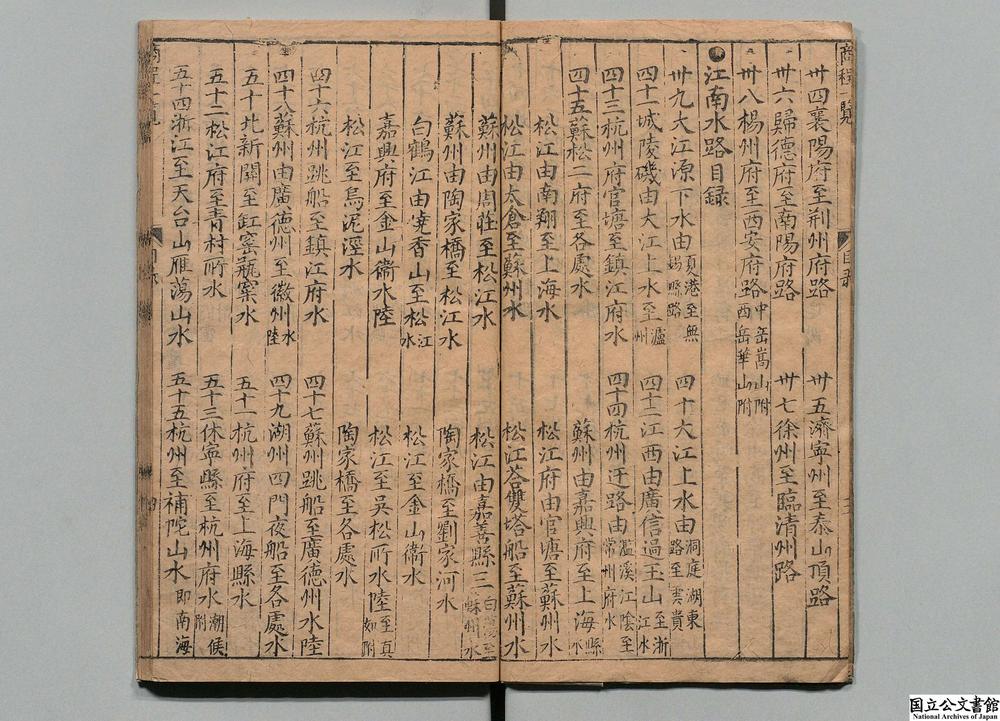 商程一覧
卅四襄陽府至荆州府路 卅五濟寧州至泰山頂路
卅六歸德府至南陽府路 卅七徐州至臨清州路
卅八楊州府至西安府路 中岳嵩山附 西岳華山附
江南水路目録
卅九大江源下水由夏港至無錫縣路 四十大江上水由洞庭湖東路至雲貴
四十一城陵磯由大江上水至瀘州 四十二江西由廣信過玉山至浙江水
四十三杭州府官塘至鎮江府水 四十四杭州迂路由灆溪江陰至常州府水
四十五蘇松二府至各處水 蘇州由嘉興府至上海縣水
松江由南翔至上海水 松江府由官塘至蘇州水
松江由太倉至蘇州水 松江荅雙塔船至蘇州水
目录
蘇州由周莊至松江水 松江由嘉善縣三白蕩至蘇州水
蘇州由陶家橋至松江水 陶家橋至劉家河水
白鶴江由嶢香山至松江水 松江至金山衞水
嘉興府至金山衞水陸 松江至吳松所水陸至真如附
松江至烏泥涇水 陶家橋至各處水
四十六杭州跳船至鎮江府水 四十七蘇州跳船至廣德州水陸
四十八蘇州由廣德州至徽州水陸 四十九湖州四門夜船至各處水
五十北新關至缸窑瓶窯水 五十一杭州府至上海縣水
五十二松江府至青村所水 五十三休寧縣至杭州府水潮候附
五十四浙江至天台山雁蕩山水 五十五杭州至補陀山水即南海
国立公文書館
National Archives of Japan